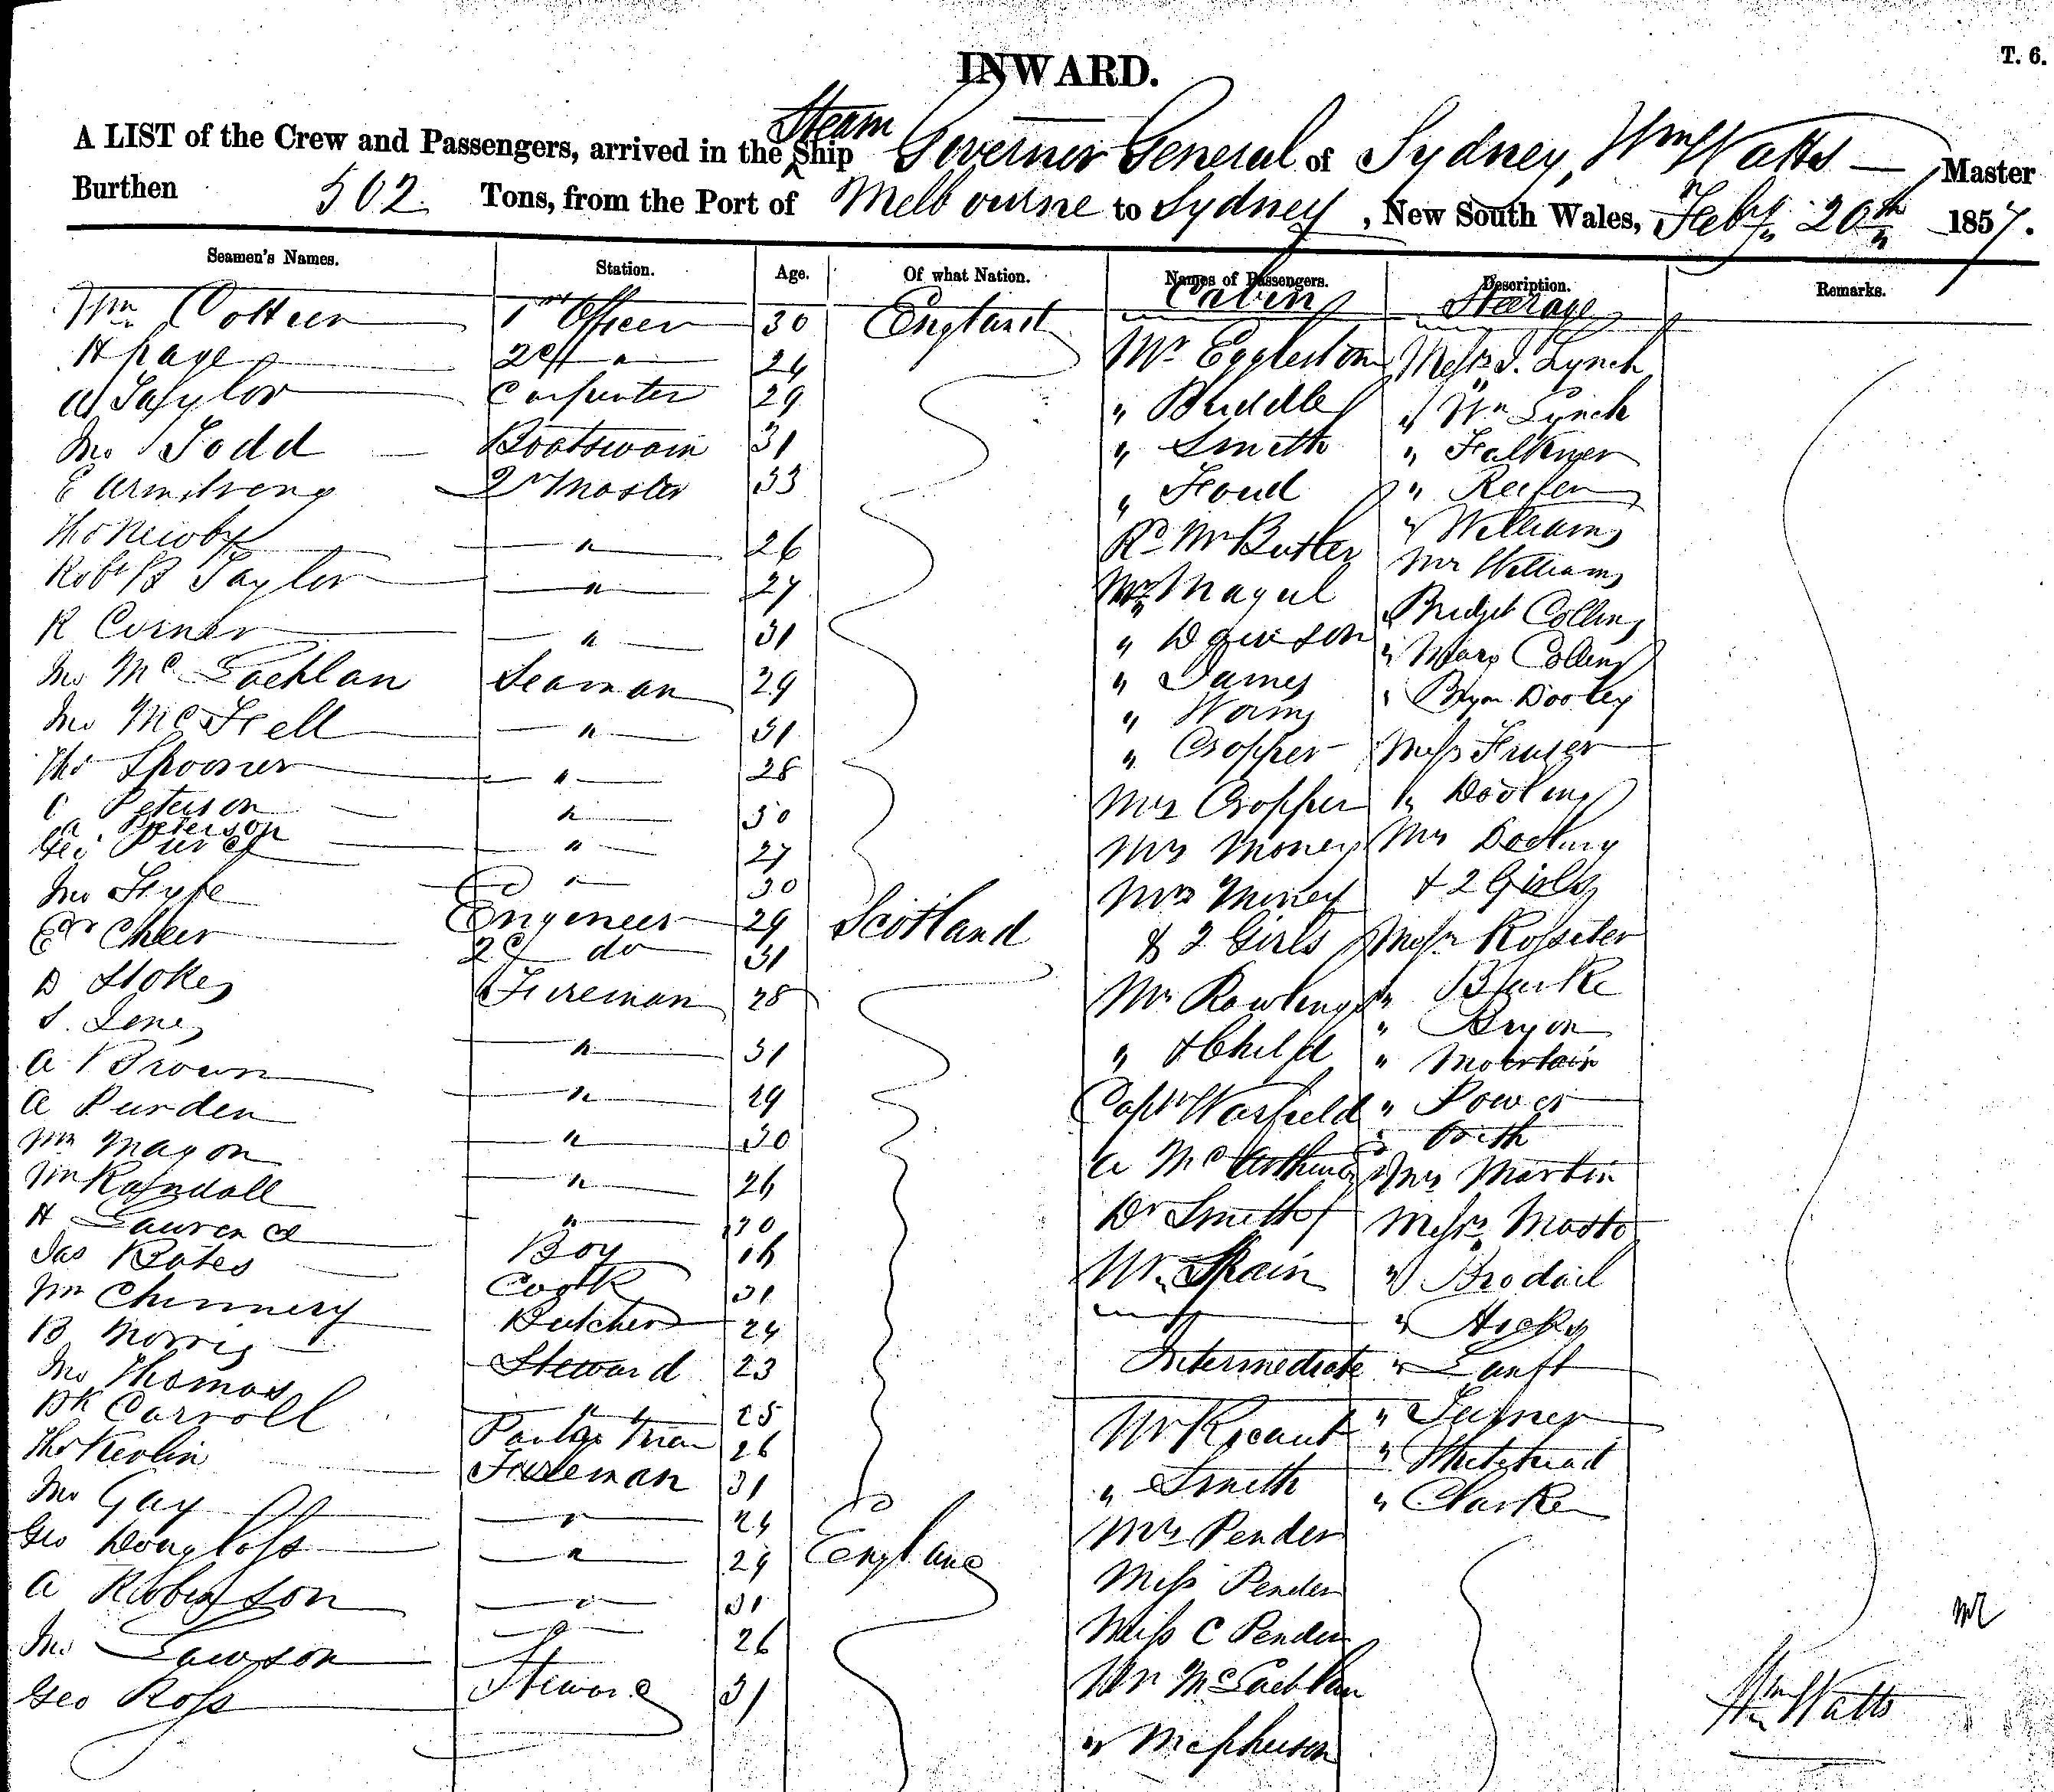 T. 6.
INWARD.
A LIST of the Crew and Passengers, arrived in the Steam Ship Governor General of Sydney, Wm Watts Master
Burthen 502 Tons, from the Port of Melbourne to Sydney, New South Wales, Feby 20th 1857.
Seamen's Names. Station. Age. Of what Nation. Names of Passengers. Description. Remarks.
Cabin Steerage
Wm Cotteer 1st Officer 30 England
H Page 2d " 24 Mr Eggleston Messrs J. Lynch
W Taylor Carpenter 29 " Buddle " Wm Lynch
Jno Todd Boatswain 31 " Smith " Falkner
E Armstrong 2r Master 33 " Foud " Reifen
Thos Newby " 26 Rd Mr Butler " Williams
Robt B Taylor " 27 Mr Nagul Mrs Williams
R Corner " 31 " Dawson Bridget Collins
Jno McLachlan Seaman 29 " James " Mary Collins
Jno McFell " 31 " Worms " Bryan Dooley
Thos Spooner " 28 " Cropper Messrs Fraser
C Peterson " 30 Mrs Cropper " Dooling
a Peterson
Geo Purcel " 27 Mrs Money Mrs Dooling
Jno Fyfe " 30 Mrs Money & 2 Girls
Er Cheer Engineer 29 Scotland & 2 Girls Messrs Rossiter
D Stokes 2d do 31
S. Lenes Fireman 28 Mr Rowlings " Burke
A Brown " 31 " & Child " Bryon
" Mountain
A Purden " 29 Capt Warfield " Power
Wm Mason " 30 A McArthur
Wm Randall " 26 Mrs Martin
H Laurence " 30 Dr Smith Messrs Masto
Jas Bates Boy 16 Mr Spain " Brodail
Wm Chinnery Cook 31 " Hicks
B Norris Butcher 24
Jno Thomas Steward 23 Intermediate
Pk Carroll " 25 Mr Ricaut " Turner
Thos Kevlin Pantry Man 26 " Whitehead
Jno Gay Fireman 31 " Smith " Clarke
Geo Douglass " 24 Mrs Pender
A Robinson " 29 England Miss Pender
" 31
Jno Lawson " 26 Miss C Pender
Geo Ross Steward 31 Mr McLachlan
" McPherson
Wm Watts